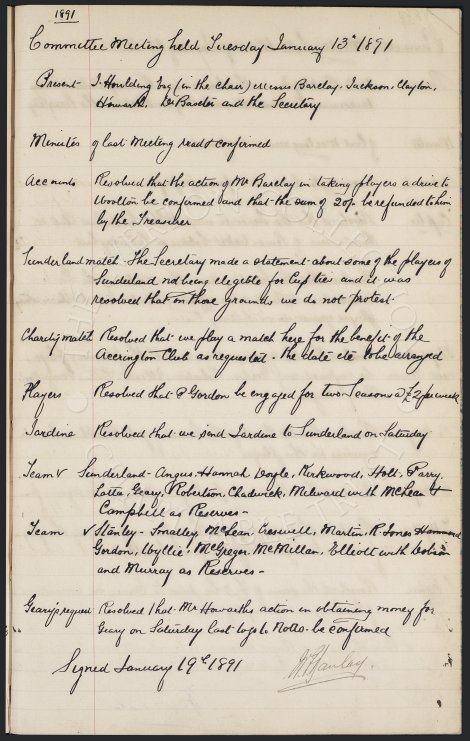 1891
Committee Meeting held Tuesday January 13th 1891
Present J. Houlding Esq (in the chair) Messrs Barclay, Jackson, Clayton,
Howarth, Dr Baxter and the Secretary
Minutes of last Meeting read & confirmed
Accounts Resolved that the action of Mr Barclay in taking players a drive to
Woolton be confirmed and that the sum of 20/- be refunded to him
by the Treasurer
Sunderland match - The Secretary made a statement about some of the players of
Sunderland not being elegible for Cup ties and it was
resolved that on those grounds we do not protest.
Charity match Resolved that we play a match here for the benefit of the
Accrington Club as requested. The date etc to be arranged
Players Resolved that P Gordon be engaged for two Seasons @ £2 per week
Jardine Resolved that we send Jardine to Sunderland on Saturday
Team V Sunderland - Angus, Hannah, Doyle, Kirkwood, Holt, Parry,
Latta, Geary, Robertson, Chadwick, Milward with McLean &
Campbell as Reserves -
Team V Stanley - Smalley, McLean, Creswell, Martin, R Jones, Hammond
Gordon, Wyllie, McGregor, McMillan, Elliott with
and Murray as Reserves -
Gearys request Resolved that Mr Howarths action in obtaining money for
Geary on Saturday last to go to Notts - be confirmed
Signed January 19th 1891